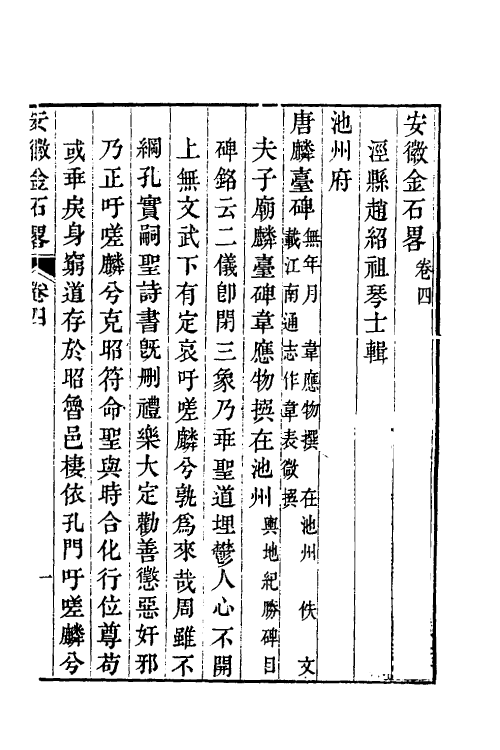 安徽金石畧卷四
涇縣趙紹祖琴士輯
池州府
唐麟臺碑無年月 韋應物撰 在池州 佚 文
載江南通志作韋表微撰
夫子廟麟臺碑韋應物撰在池州輿地紀勝碑目
碑銘云二儀卽閉三象乃乖聖道埋鬱人心不開
上無文武下有定哀吁嗟麟兮孰爲來哉周雖不
綱孔實嗣聖詩書旣刪禮樂大定勸善懲惡奸邪
乃正吁嗟麟兮克昭符命聖與時合化行位尊苟
或乖戾身窮道存於昭魯邑棲依孔門吁嗟麟兮
安徽金石畧
卷四
一